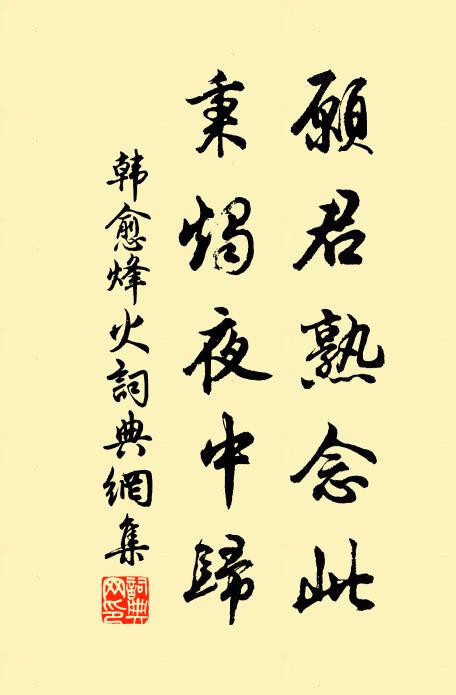 願君熟念此
秉燭夜中歸
韩愈烽火詞典網集
詞典網印